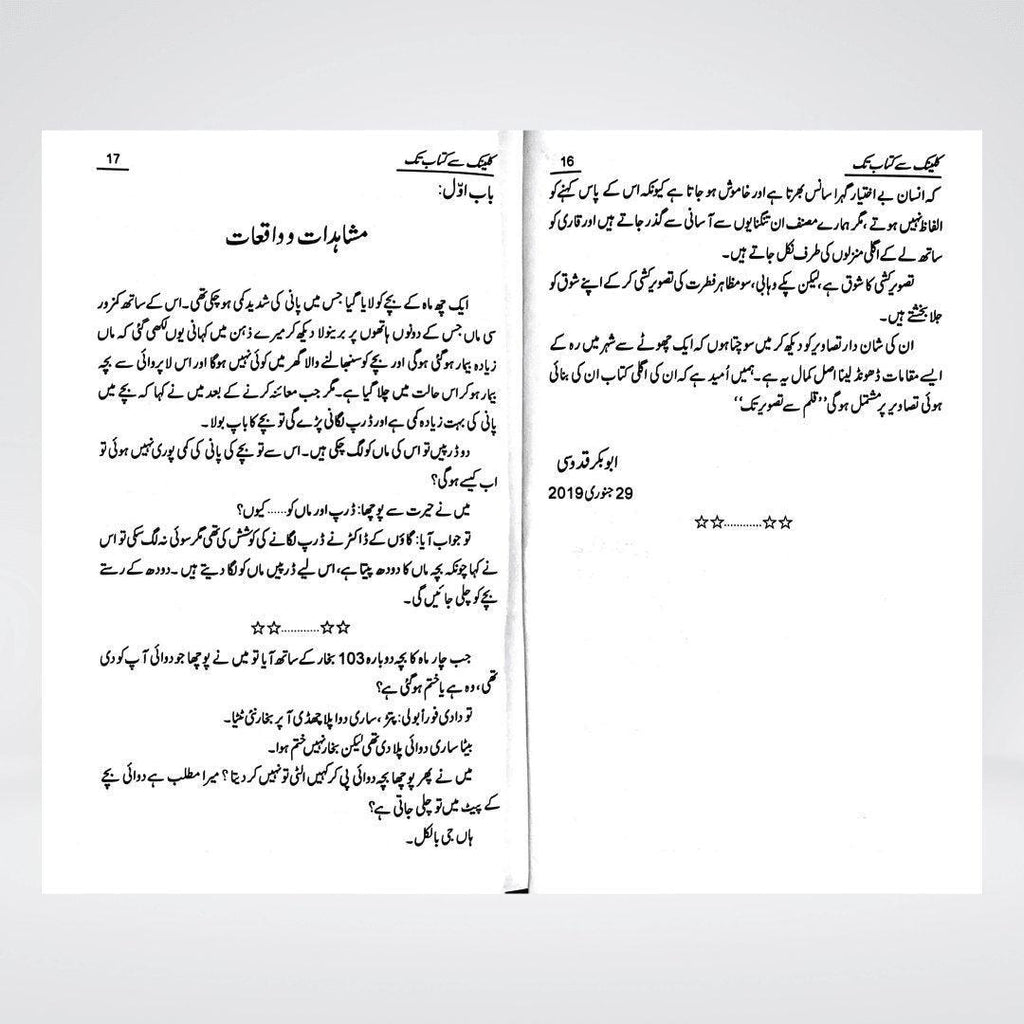 کلینک سے کتاب تک
16
کہ انسان بے اختیار گہرا سانس بھرتا ہے اور خاموش ہو جاتا ہے کیونکہ اس کے پاس کہنے کو
الفاظ نہیں ہوتے، مگر ہمارے مصنف ان تنگنایوں سے آسانی سے گذر جاتے ہیں اور قاری کو
ساتھ لے کے اگلی منزلوں کی طرف نکل جاتے ہیں۔
تصویر کشی کا شوق ہے، لیکن پکے وہابی، سو مظاہر فطرت کی تصویر کشی کر کے اپنے شوق کو
جلا بخشتے ہیں۔
ان کی شان دار تصاویر کو دیکھ کر میں سوچتا ہوں کہ ایک چھوٹے سے شہر میں رہ کے
ایسے مقامات ڈھونڈ لینا اصل کمال یہ ہے۔ ہمیں اُمید ہے کہ ان کی اگلی کتاب ان کی بنائی
ہوئی تصاویر پر مشتمل ہو گی ’’قلم سے تصویر تک‘‘
ابوبکر قدوسی
29 جنوری 2019
☆☆............☆☆
کلینک سے کتاب تک
17
باب اوّل:
مشاہدات و واقعات
ایک چھ ماہ کے بچے کو لایا گیا جس میں پانی کی شدید کمی ہو چکی تھی۔ اس کے ساتھ کمزور
سی ماں جس کے دونوں ہاتھوں پر برینولا دیکھ کر میرے ذہن میں کہانی یوں لکھی گئی کہ ماں
زیادہ بیمار ہو گئی ہوگی اور بچے کو سنبھالنے والا گھر میں کوئی نہیں ہوگا اور اس لا پروائی سے بچہ
بیمار ہو کر اس حالت میں چلا گیا ہے۔ مگر جب معائنہ کرنے کے بعد میں نے کہا کہ بچے میں
پانی کی بہت زیادہ کمی ہے اور ڈرپ لگانی پڑے گی تو بچے کا باپ بولا۔
دو ڈرپیں تو اس کی ماں کو لگ چکی ہیں۔ اس سے تو بچے کی پانی کی کمی پوری نہیں ہوئی تو
اب کیسے ہوگی؟
میں نے حیرت سے پوچھا: ڈرپ اور ماں کو...... کیوں؟
تو جواب آیا: گاؤں کے ڈاکٹر نے ڈرپ لگانے کی کوشش کی تھی مگر سوئی نہ لگ سکی تو اس
نے کہا چونکہ بچہ ماں کا دودھ پیتا ہے، اس لیے ڈرپیں ماں کو لگا دیتے ہیں۔ دودھ کے رستے
بچے کو چلی جائیں گی۔
☆☆............☆☆
جب چار ماہ کا بچہ دوبارہ 103 بخار کے ساتھ آیا تو میں نے پوچھا جو دوائی آپ کو دی
تھی، وہ ہے یا ختم ہو گئی ہے؟
تو دادی فوراً بولی: پتر، ساری دوا پلا چھڈی آ پر بخار نئی ٹٹیا۔
بیٹا ساری دوائی پلا دی تھی لیکن بخار نہیں ختم ہوا۔
میں نے پھر پوچھا بچہ دوائی پی کر کہیں الٹی تو نہیں کر دیتا؟ میرا مطلب ہے دوائی بچے
کے پیٹ میں تو چلی جاتی ہے؟
ہاں جی بالکل۔